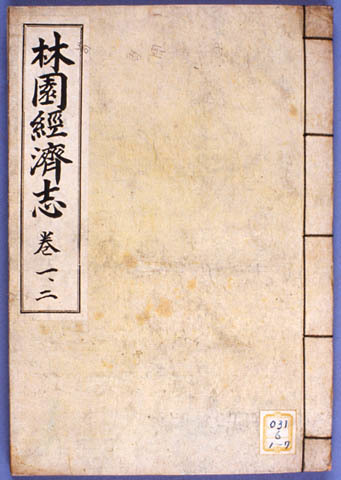 林園經濟志 卷一、二
031
6
1-7